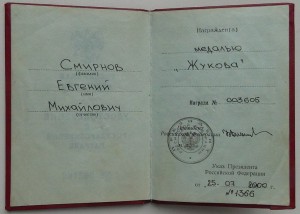 Смирнов
(фамилия)
Евгений
(имя)
Михайлович
(отчество)
Награжден(а)
медалью
„Жукова"
Награда № 003605
Президент
Российской Федерации
Указ Президента
Российской Федерации
от 25. 07 2000 г.
№ 1366